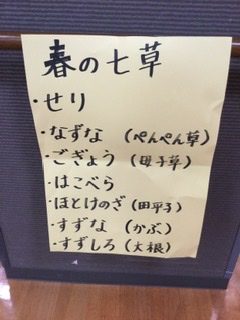 春の七草
・せり
・なずな（ぺんぺん草）
・ごぎょう（母子草）
・はこべら
・ほとけのざ（田平子）
・すずな（かぶ）
・すずしろ（大根）